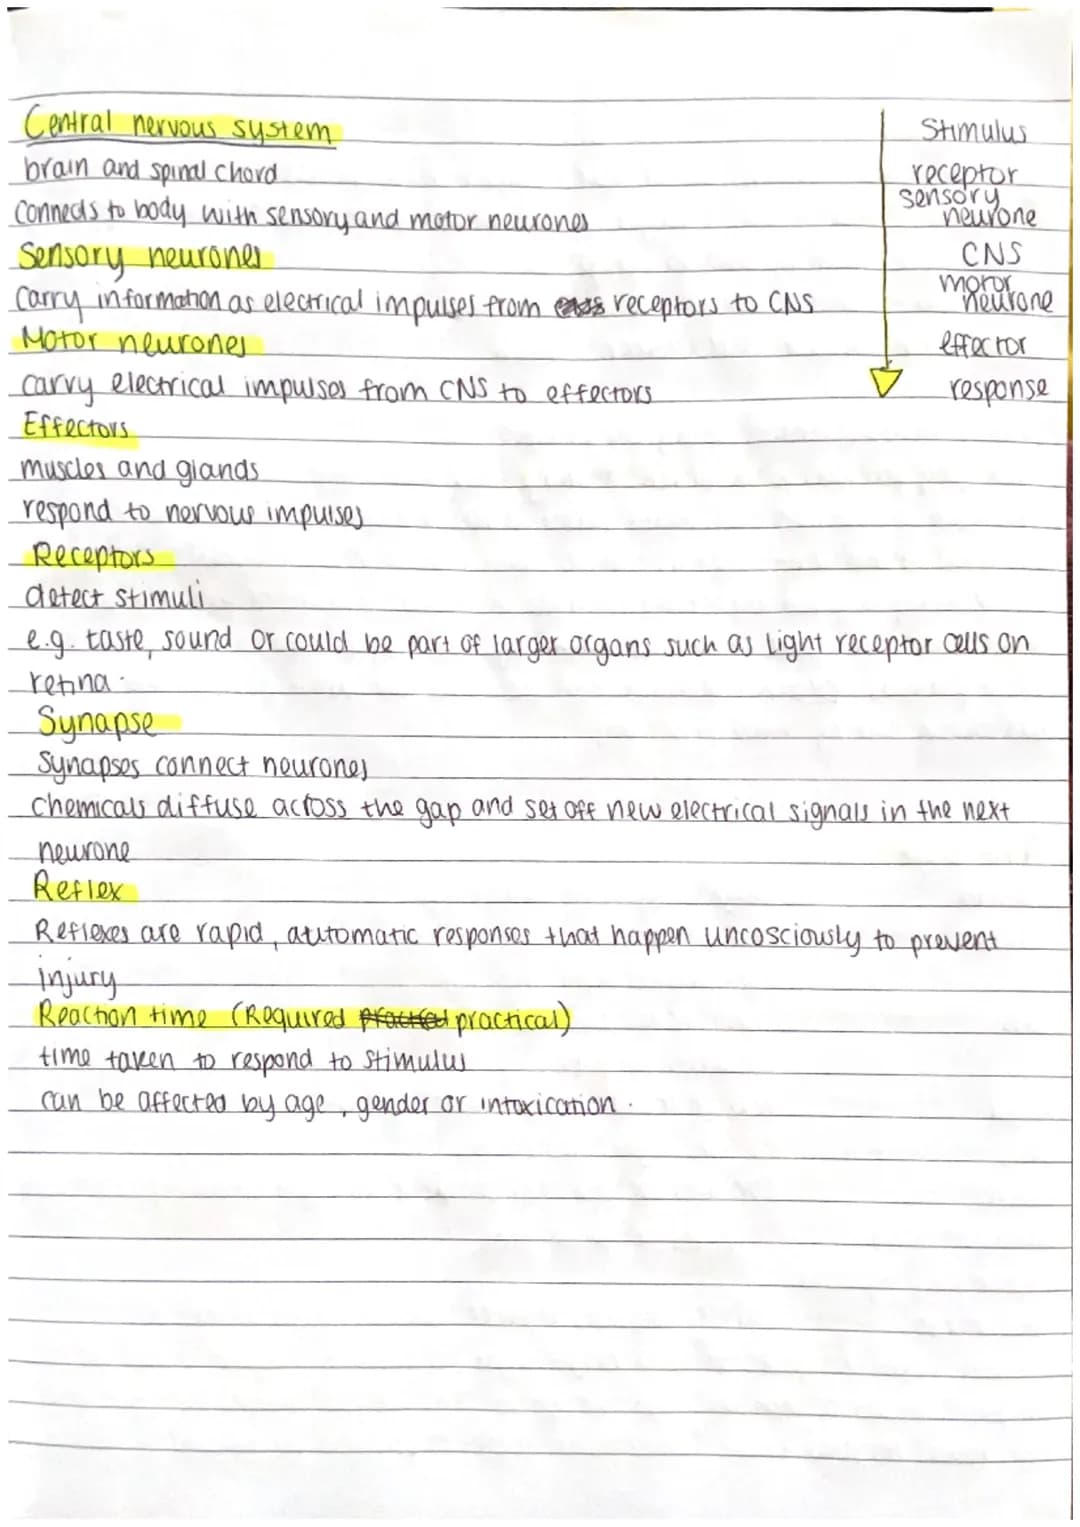 Central nervous system
brain and spinal chord
connects to body with sensory and motor neurones
Sensory neurones
carry information as electrical impulses from receptors to CNS
Motor neurones
carry electrical impulses from CNS to effectors
Effectors
muscles and glands
respond to nervous impulses
Receptors
detect stimuli
e.g. taste, sound or could be part of larger organs such as light receptor cells on
retina.
Synapse
Synapses connect neurones
chemicals diffuse across the gap and set off new electrical signals in the next
neurone
Reflex
Reflexes are rapid, automatic responses that happen uncosciously to prevent
injury
Reaction time (Required practical)
time taken to respond to stimulus
can be affected by age, gender or intoxication.
Stimulus
receptor
sensory
neurone
CNS
motor
neurone
effector
response